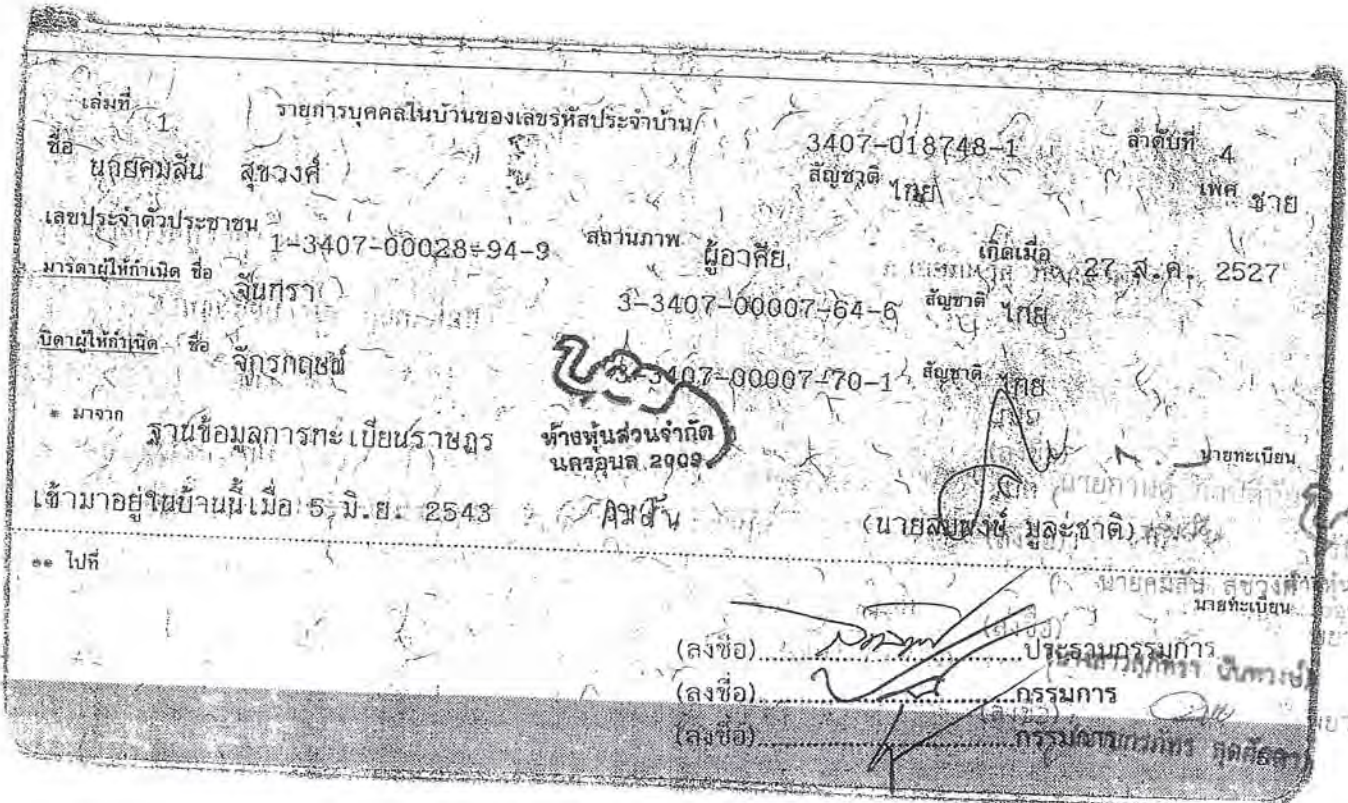 เล่มที่ 1 รายการบุคคลในบ้านของเลขรหัสประจำบ้าน 3407-018748-1 ลำดับที่ 4
ชื่อ นายคมสัน สุขวงศ์ สัญชาติ ไทย เพศ ชาย
เลขประจำตัวประชาชน 1-3407-00028-94-9 สถานภาพ ผู้อาศัย เกิดเมื่อ 27 ส.ค. 2527
มารดาผู้ให้กำเนิด ชื่อ จันทรา 3-3407-00007-64-6 สัญชาติ ไทย
บิดาผู้ให้กำเนิด ชื่อ จักรกฤษณ์ 3-3407-00007-70-1 สัญชาติ ไทย
* มาจาก ฐานข้อมูลการทะเบียนราษฎร
ห้างหุ้นส่วนจำกัด
นครอุบล 2009
นายทะเบียน
เข้ามาอยู่ในบ้านนี้เมื่อ 5 มิ.ย. 2543 คมสัน (นายสมพงษ์ มูละชาติ)
** ไปที่
นายคมสัน สุขวงศ์
นายทะเบียน
(ลงชื่อ) ประธานกรรมการ
(ลงชื่อ) กรรมการ
(ลงชื่อ) กรรมการ